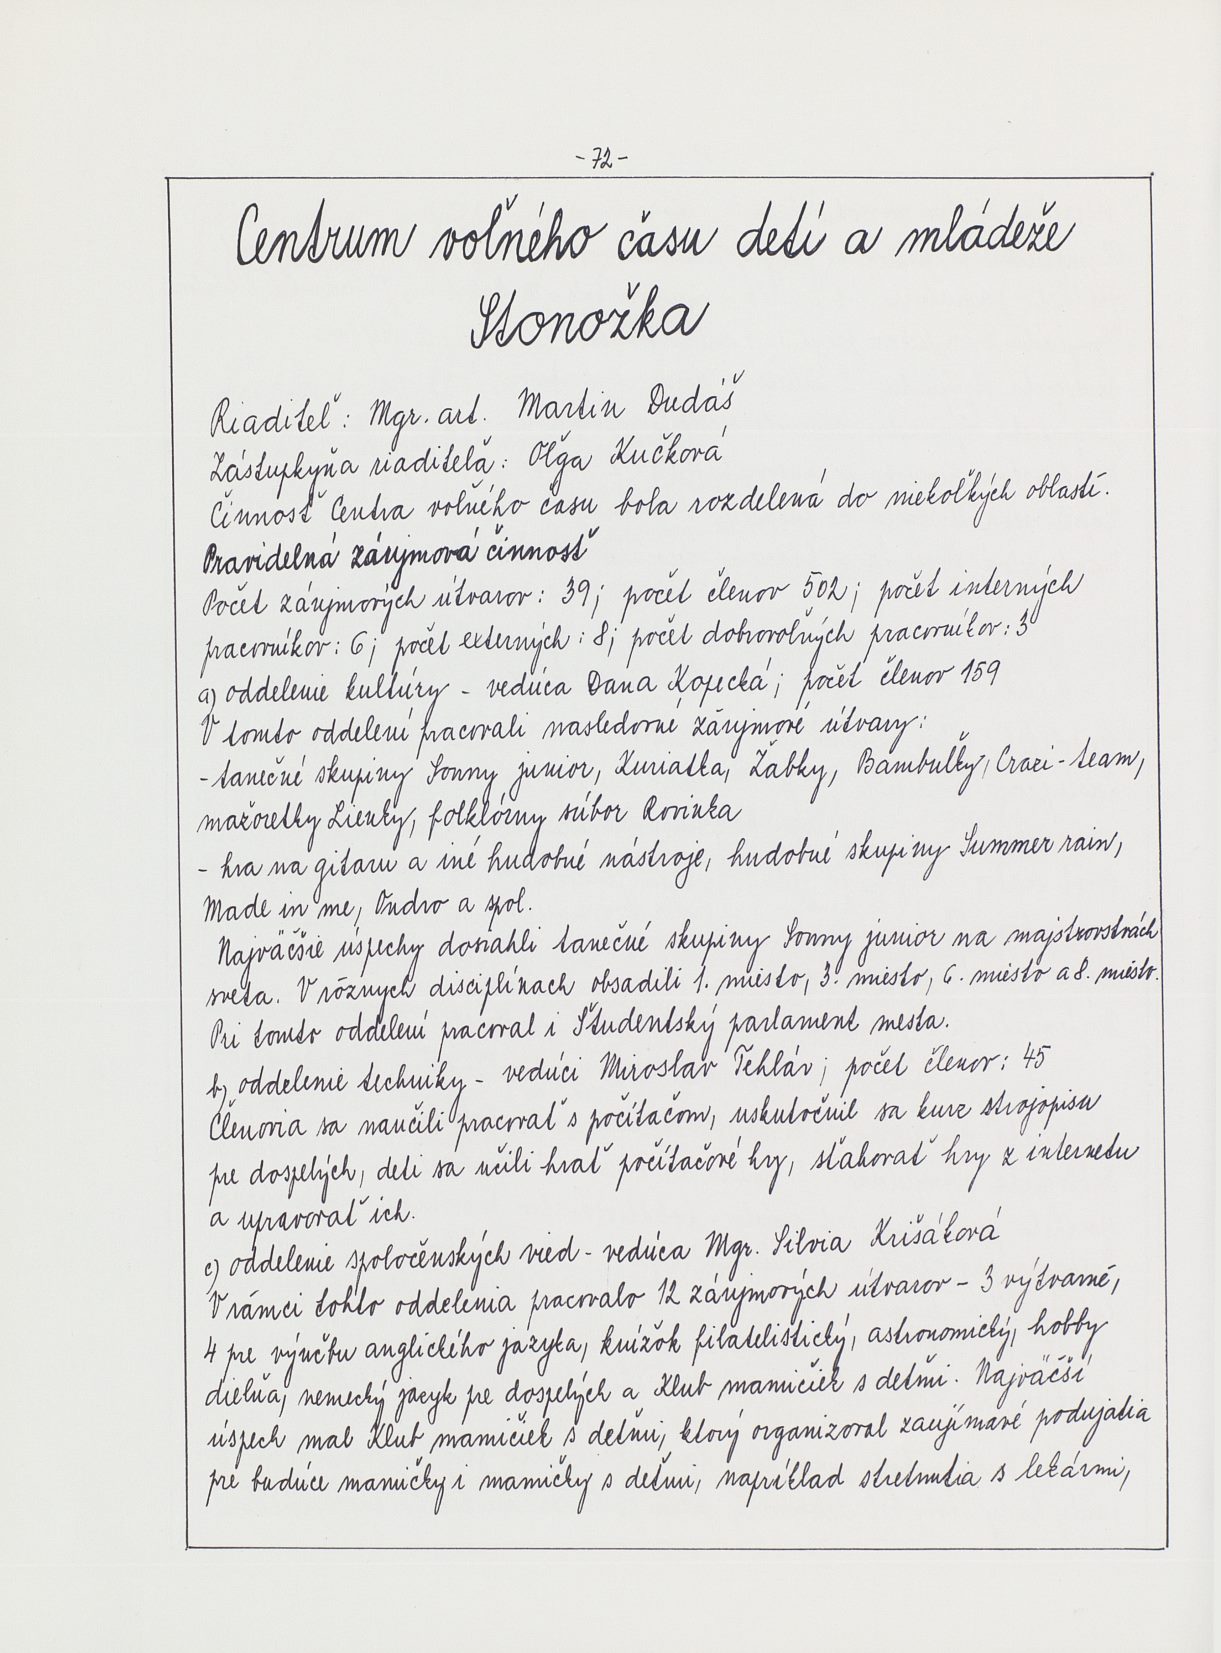 -72-
Centrum voľného času detí a mládeže
Stonožka
Riaditeľ: Mgr. art. Martin Dudáš
Zástupkyňa riaditeľa: Oľga Kučková
Činnosť Centra voľného času bola rozdelená do niekoľkých oblastí.
Pravidelná záujmová činnosť
Počet záujmových útvarov: 39; počet členov 502; počet interných
pracovníkov: 6; počet externých: 8; počet dobrovoľných pracovníkov: 3
a) oddelenie kultúry - vedúca Dana Kopecká; počet členov 159
V tomto oddelení pracovali nasledovné záujmové útvary:
- tanečné skupiny Sonny junior, Kuriatka, Žabky, Bambuľky, Crazi-team,
mažoretky Lienky, folklórny súbor Rovinka
- hra na gitaru a iné hudobné nástroje, hudobné skupiny Summer rain,
Made in me, Ondro a spol.
Najväčšie úspechy dosiahli tanečné skupiny Sonny junior na majstrovstvách
sveta. V rôznych disciplínach obsadili 1. miesto, 3. miesto, 6. miesto a 8. miesto.
Pri tomto oddelení pracoval i Študentský parlament mesta.
b) oddelenie techniky - vedúci Miroslav Tehláv; počet členov: 45
Členovia sa naučili pracovať s počítačom, uskutočnil sa kurz strojopisu
pre dospelých, deti sa učili hrať počítačové hry, sťahovať hry z internetu
a upravovať ich.
c) oddelenie spoločenských vied - vedúca Mgr. Silvia Krišáková
V rámci tohto oddelenia pracovalo 12 záujmových útvarov - 3 výtvarné,
4 pre výučbu anglického jazyka, knižok filatelistický, astronomický, hobby
dielňa, nemecký jazyk pre dospelých a Klub mamičiek s deťmi. Najväčší
úspech mal Klub mamičiek s deťmi, ktorý organizoval zaujímavé podujatia
pre budúce mamičky i mamičky s deťmi, napríklad stretnutia s lekármi,